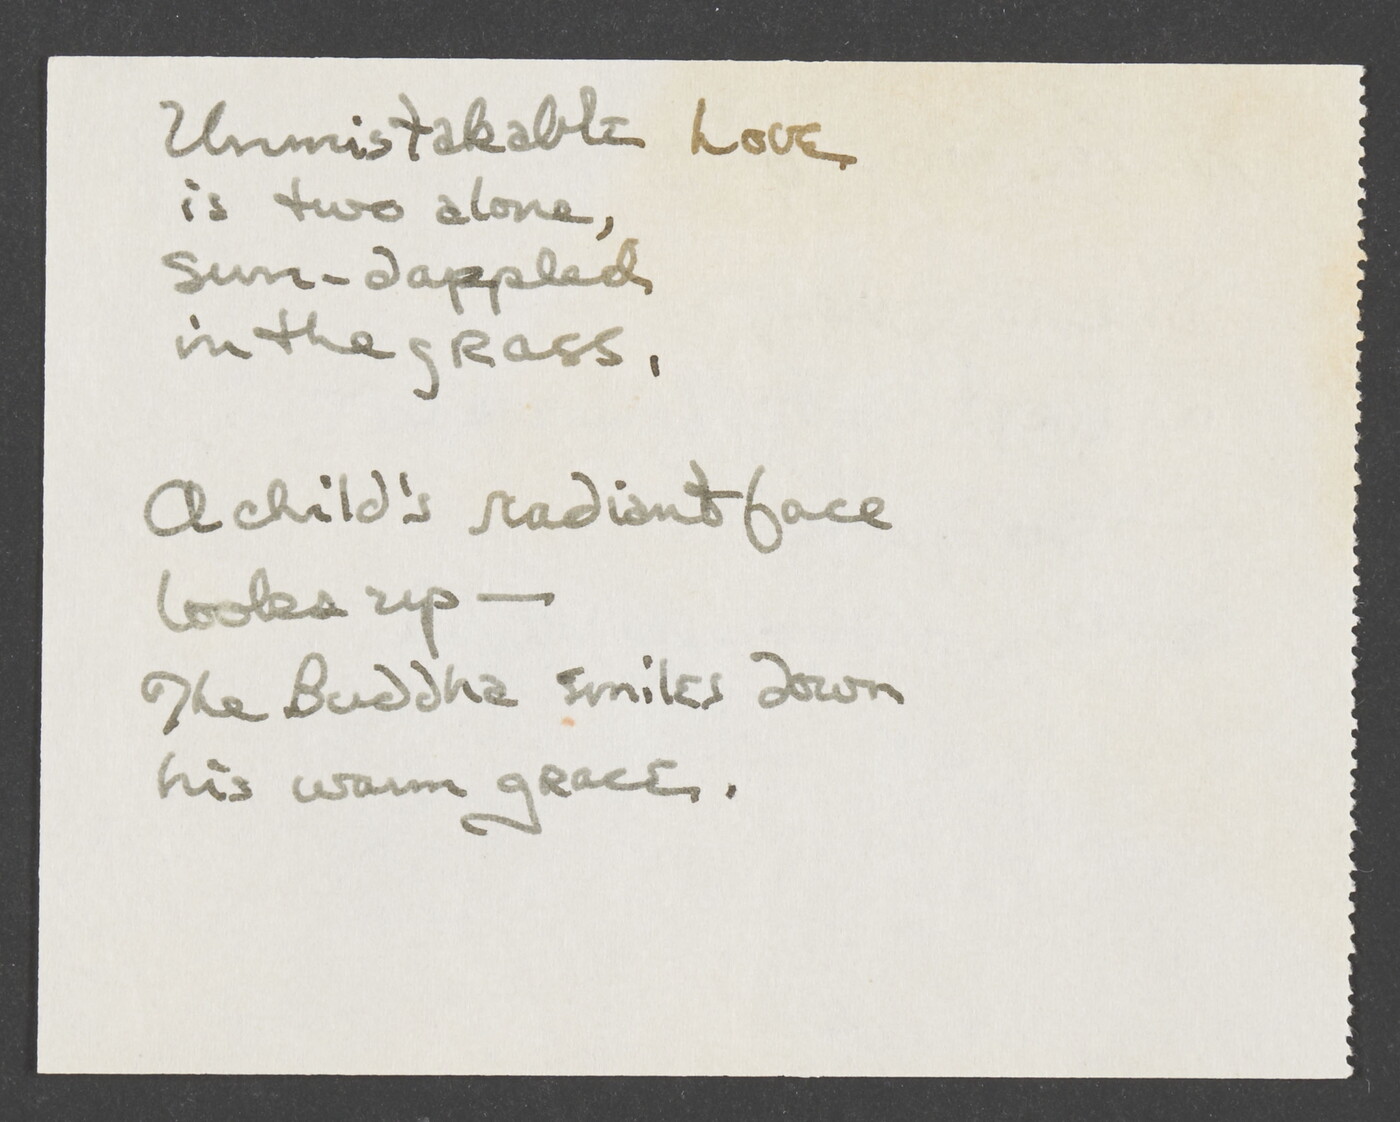 Unmistakable Love
is two alone,
sun-dappled
in the gRass,
A child's radiant face
looks up—
The Buddha smiles down
his warm gRace.